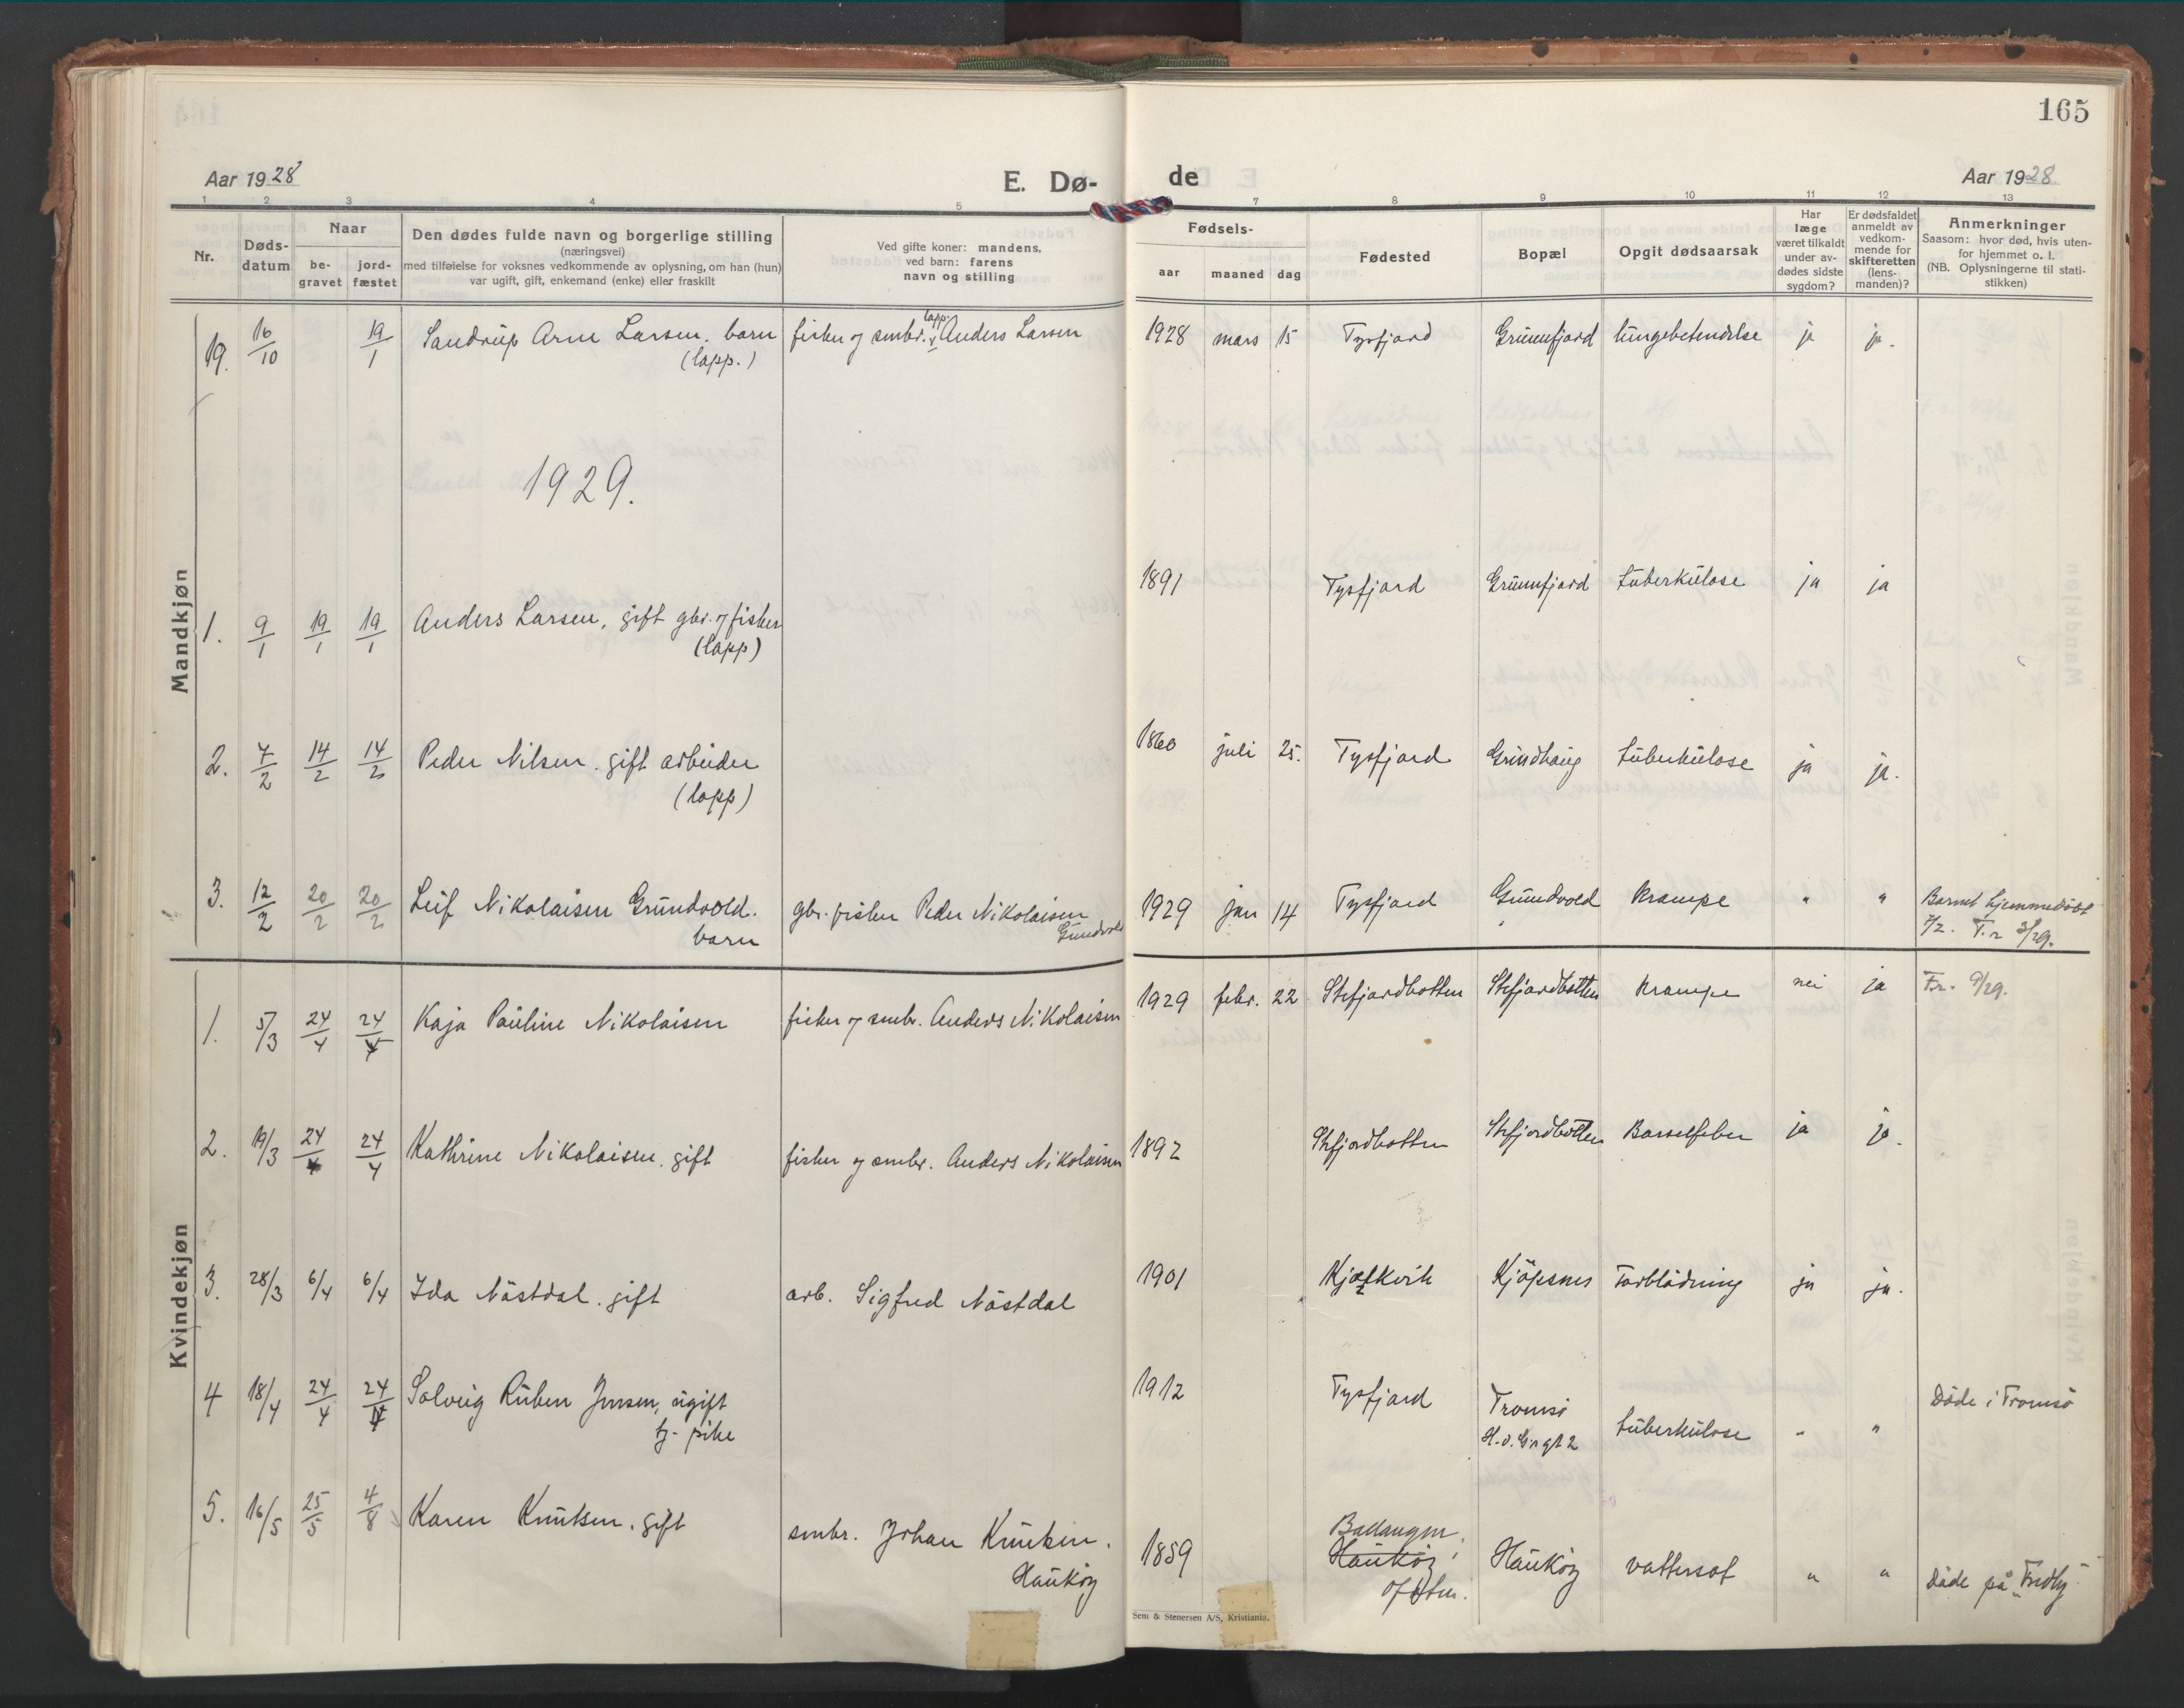 165
Aar 1928
E. Dø-
de
Aar 1928
1 2 3 4 5 7 8 9 10 11 12 13
Nr.
Døds-
datum
Naar
be-
gravet
jord-
fæstet
Den dødes fulde navn og borgerlige stilling
(næringsvei)
med tilføielse for voksnes vedkommende av oplysning, om han (hun)
var ugift, gift, enkemand (enke) eller fraskilt
Ved gifte koner: mandens,
ved barn: farens
navn og stilling
Fødsels-
aar
maaned
dag
Fødested
Bopæl
Opgit dødsaarsak
Har
læge
været tilkaldt
under av-
dødes sidste
sygdom?
Er dødsfaldet
anmeldt av
vedkom-
mende for
skifteretten
(lens-
manden)?
Anmerkninger
Saasom: hvor død, hvis uten-
for hjemmet o. l.
(NB. Oplysningerne til stati-
stikken)
Mandkjøn
19. 16/10 19/1 Sandrup Arne Larsen. barn fisker og smbr. lapp. Anders Larsen 1928 mars 15 Tysfjord Grunnfjord lungebetendelse ja ja.
(lapp.)
1929.
1. 9/1 19/1 19/1 Anders Larsen, gift gbr. og fisker 1891 Tysfjord Grunnfjord Tuberkulose ja ja
(lapp)
2. 7/2 14/2 14/2 Peder Nilsen. gift arbeider 1860 juli 25. Tysfjord Grundhaug Tuberkulose ja ja.
(lapp)
3. 12/2 20/2 20/2 Leif Nikolaisen Grundvold. gbr. fisker Peder Nikolaisen 1929 jan 14 Tysfjord Grundvold Krampe " " Barnet hjemmedöbt
barn Grundvold 7/2. F.r 3/29.
Kvindekjøn
1. 5/3 24/4 24/4 Kaja Pauline Nikolaisen fisker og smbr. Anders Nikolaisen 1929 febr. 22 Stefjordbotten Stefjordbotten Krampe nei ja Fr. 9/29.
2. 19/3 24/4 24/4 Kathrine Nikolaisen. gift fisker og smbr. Anders Nikolaisen 1892 Stefjordbotten Stefjordbotten Barselfeber ja ja.
3. 28/3 6/4 6/4 Ida Nästdal. gift arb. Sigfred Nästdal 1901 Kjöpsnes Forblödning ja ja.
4 18/4 24/4 24/4 Solveig Ruben Jensen, ugift 1912 Tysfjord Tromsö Tuberkulose " " Döde i Tromsö
tj. pike
5. 16/5 25/5 4/8 Karen Knutsen. gift smbr. Johan Knutsen. 1859 Ballangen, Hauköy Hauköy vattersot " " Döde på "Fredly"
Hauköy Ofoten.
Sem & Stenersen A/S, Kristiania.